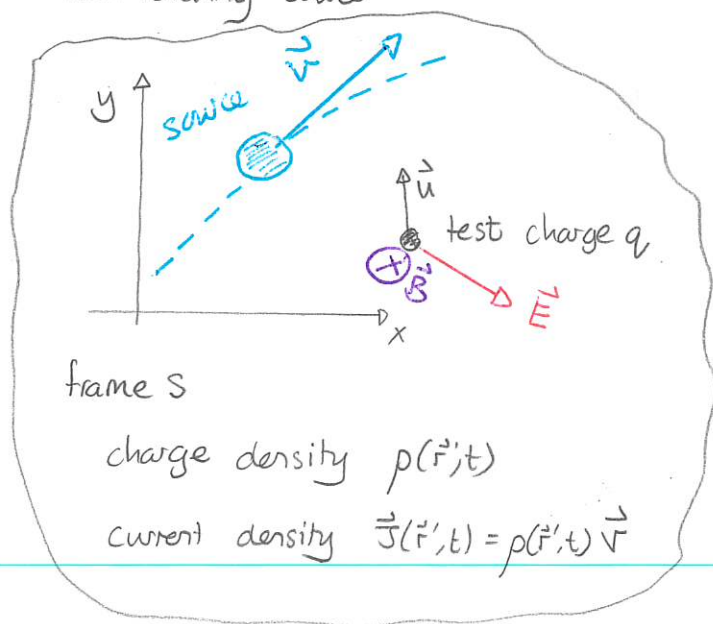 y
source
v⃗
u⃗
test charge q
B⃗
E⃗
x
frame S
charge density ρ(r⃗',t)
current density J⃗(r⃗',t) = ρ(r⃗',t) v⃗